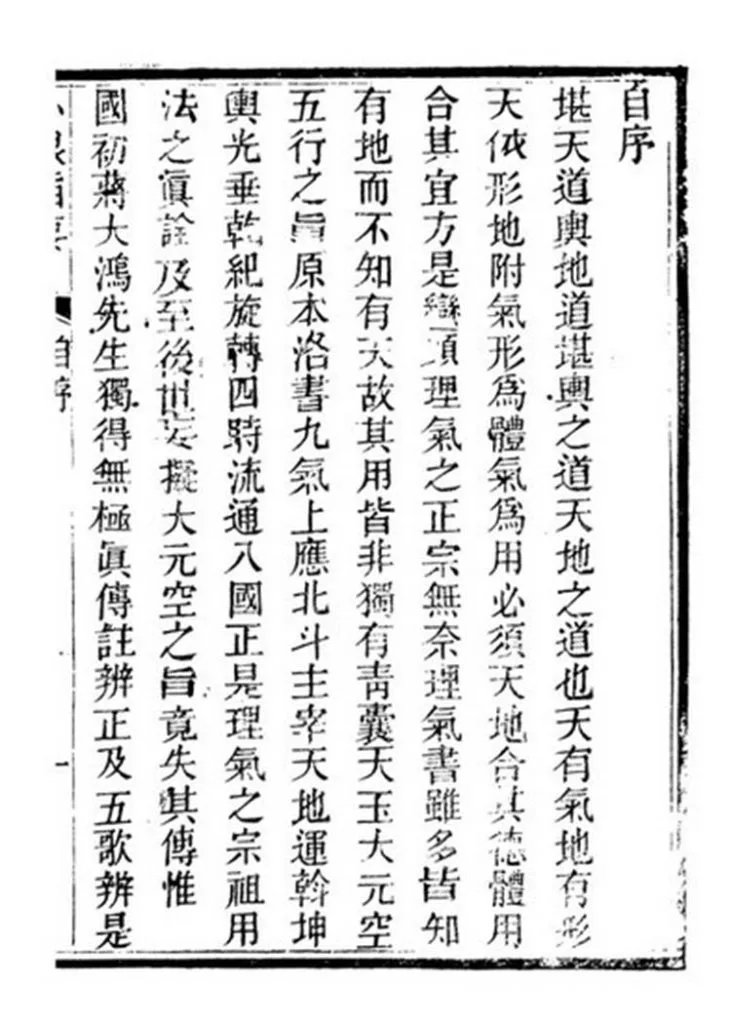 自序
堪天道輿地道堪輿之道天地之道也天有氣地有形
天依形地附氣形爲體氣爲用必須天地合其德體用
合其宜方是巒頭理氣之正宗無奈理氣書雖多皆知
有地而不知有天故其用皆非獨有靑囊天玉大元空
五行之旨原本洛書九氣上應北斗主宰天地運斡坤
輿光垂乾紀旋轉四時流通八國正是理氣之宗祖用
法之眞詮及至後世妄擬大元空之旨竟失其傳惟
國初蔣大鴻先生獨得無極眞傳註辨正及五歌辨是
自序
一